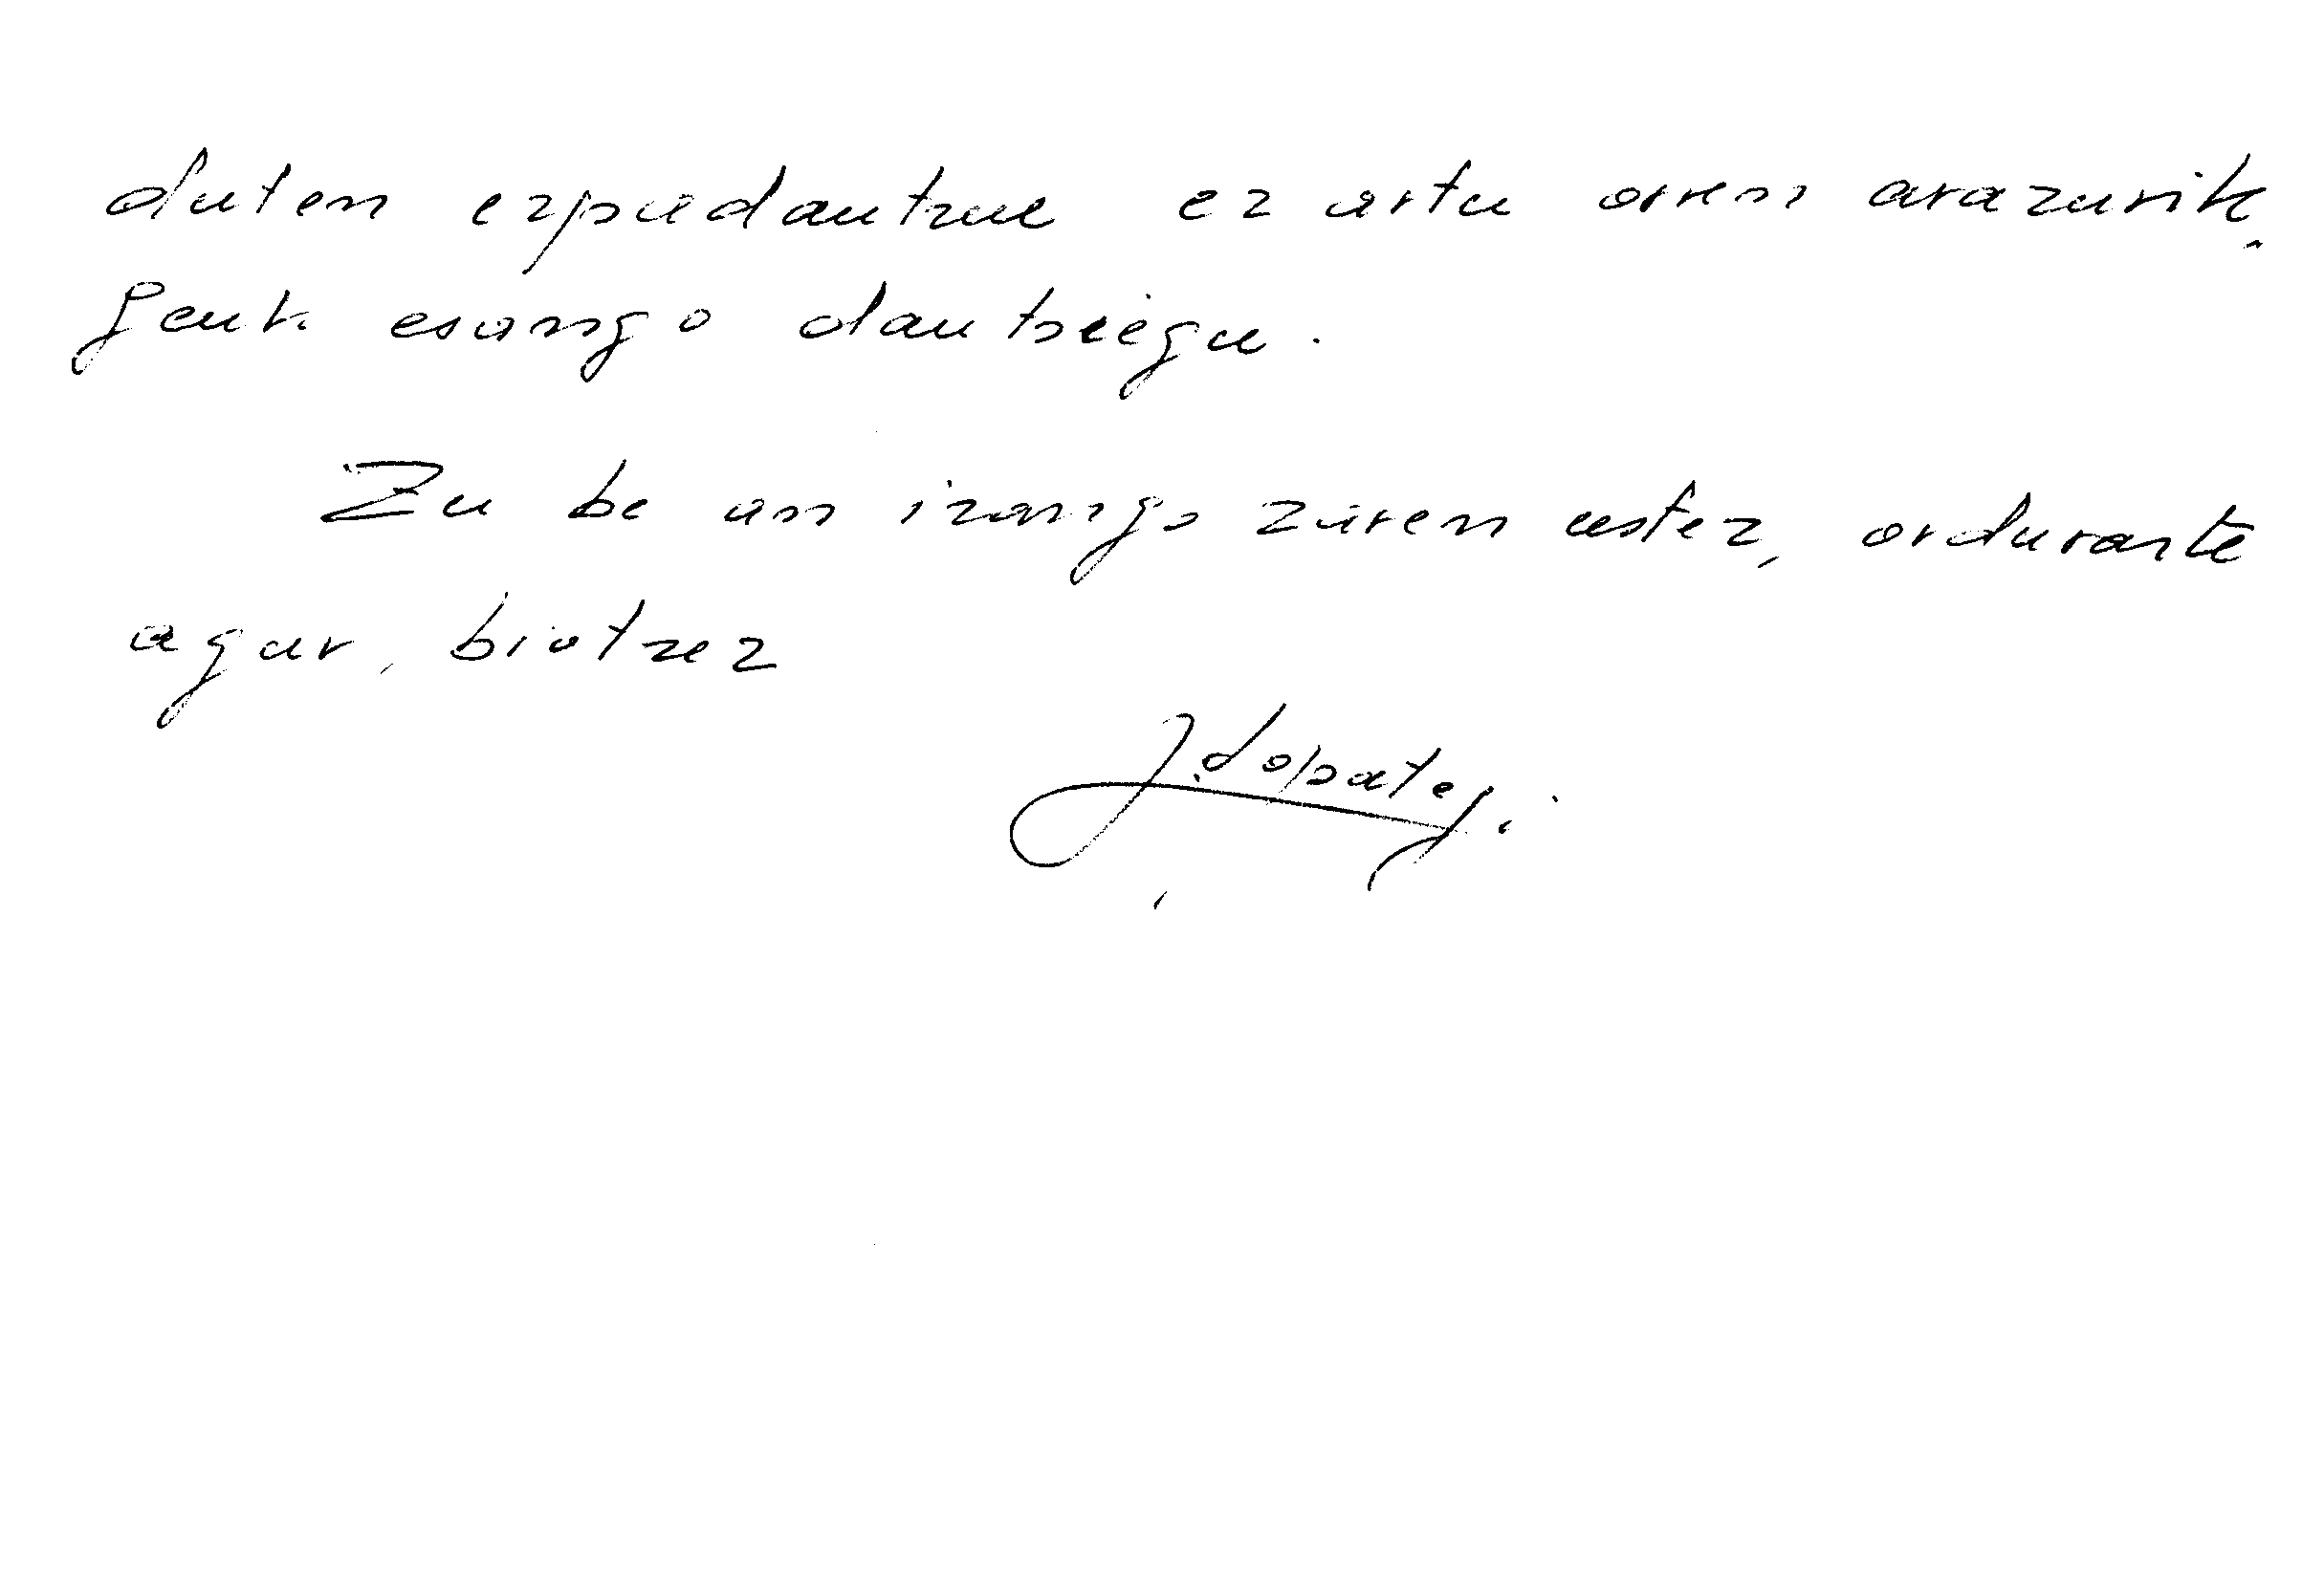 duten ezpadautzue ez artu orren ararazurik.
Geuk esango dautsiegu.
Zu be an izango ziren ustez, ordurarte
agur, biotzez
J. Lopategi